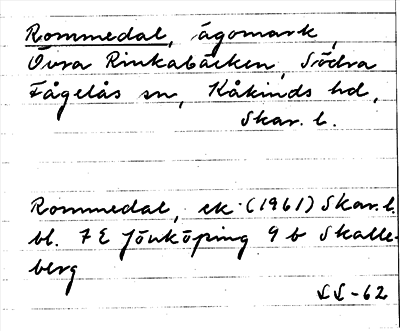 Rommedal, ägomark,
Övra Rinkabäcken, Södra
Fågelås sn, Kåkinds hd,
Skar. l.
Rommedal, ek (1961) Skar. l.
bl. 7 E Jönköping 9 b Skalle-
berg
-62